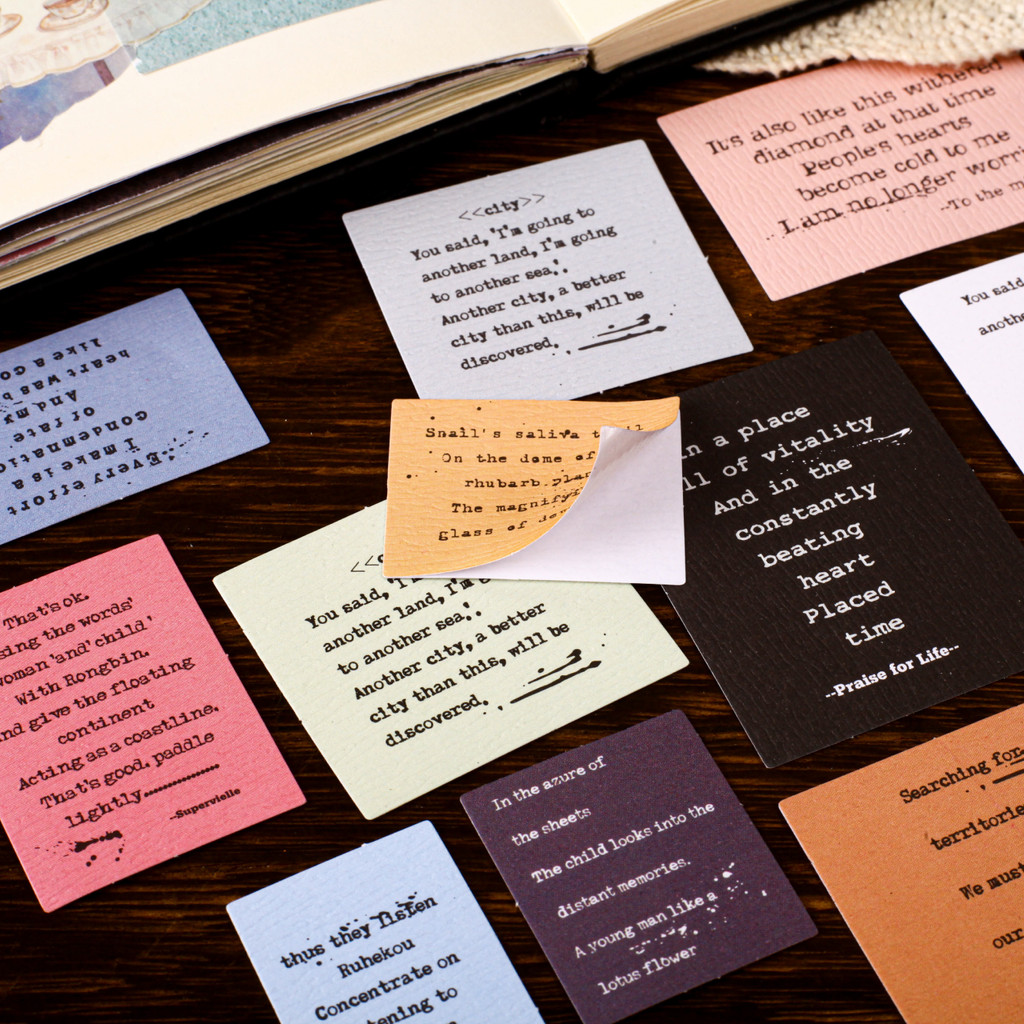 It's also like this withered
diamond at that time
People's hearts
become cold to me
I am no longer
--To the
<<city>>
You said, 'I'm going to
another land, I'm going
to another sea.'.
Another city, a better
city than this, will be
discovered.
You said
Every effort
I make is a
of fate
And my
heart was
Snail's saliva
On the dome of
rhubarb
The
glass of
in a place
of vitality
And in the
constantly
beating
heart
Placed
time
--Praise for Life--
That's ok.
the words'
'and' child'
With Rongbin.
and give the floating
continent
Acting as a coastline.
That's good. paddle
lightly
--Supervielle
You said,
another land, I'm
to another sea.'.
Another city, a better
city than this, will be
discovered.
In the azure of
the sheets
The child looks into the
distant memories.
A young man like a
lotus flower
Searching for
We must
our
thus they listen
Ruhekou
Concentrate on
to